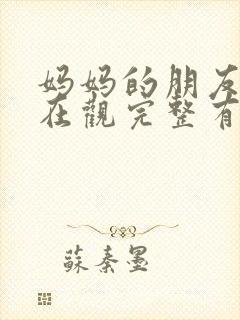 妈妈的朋友
在觀完整有
蘇秦墨